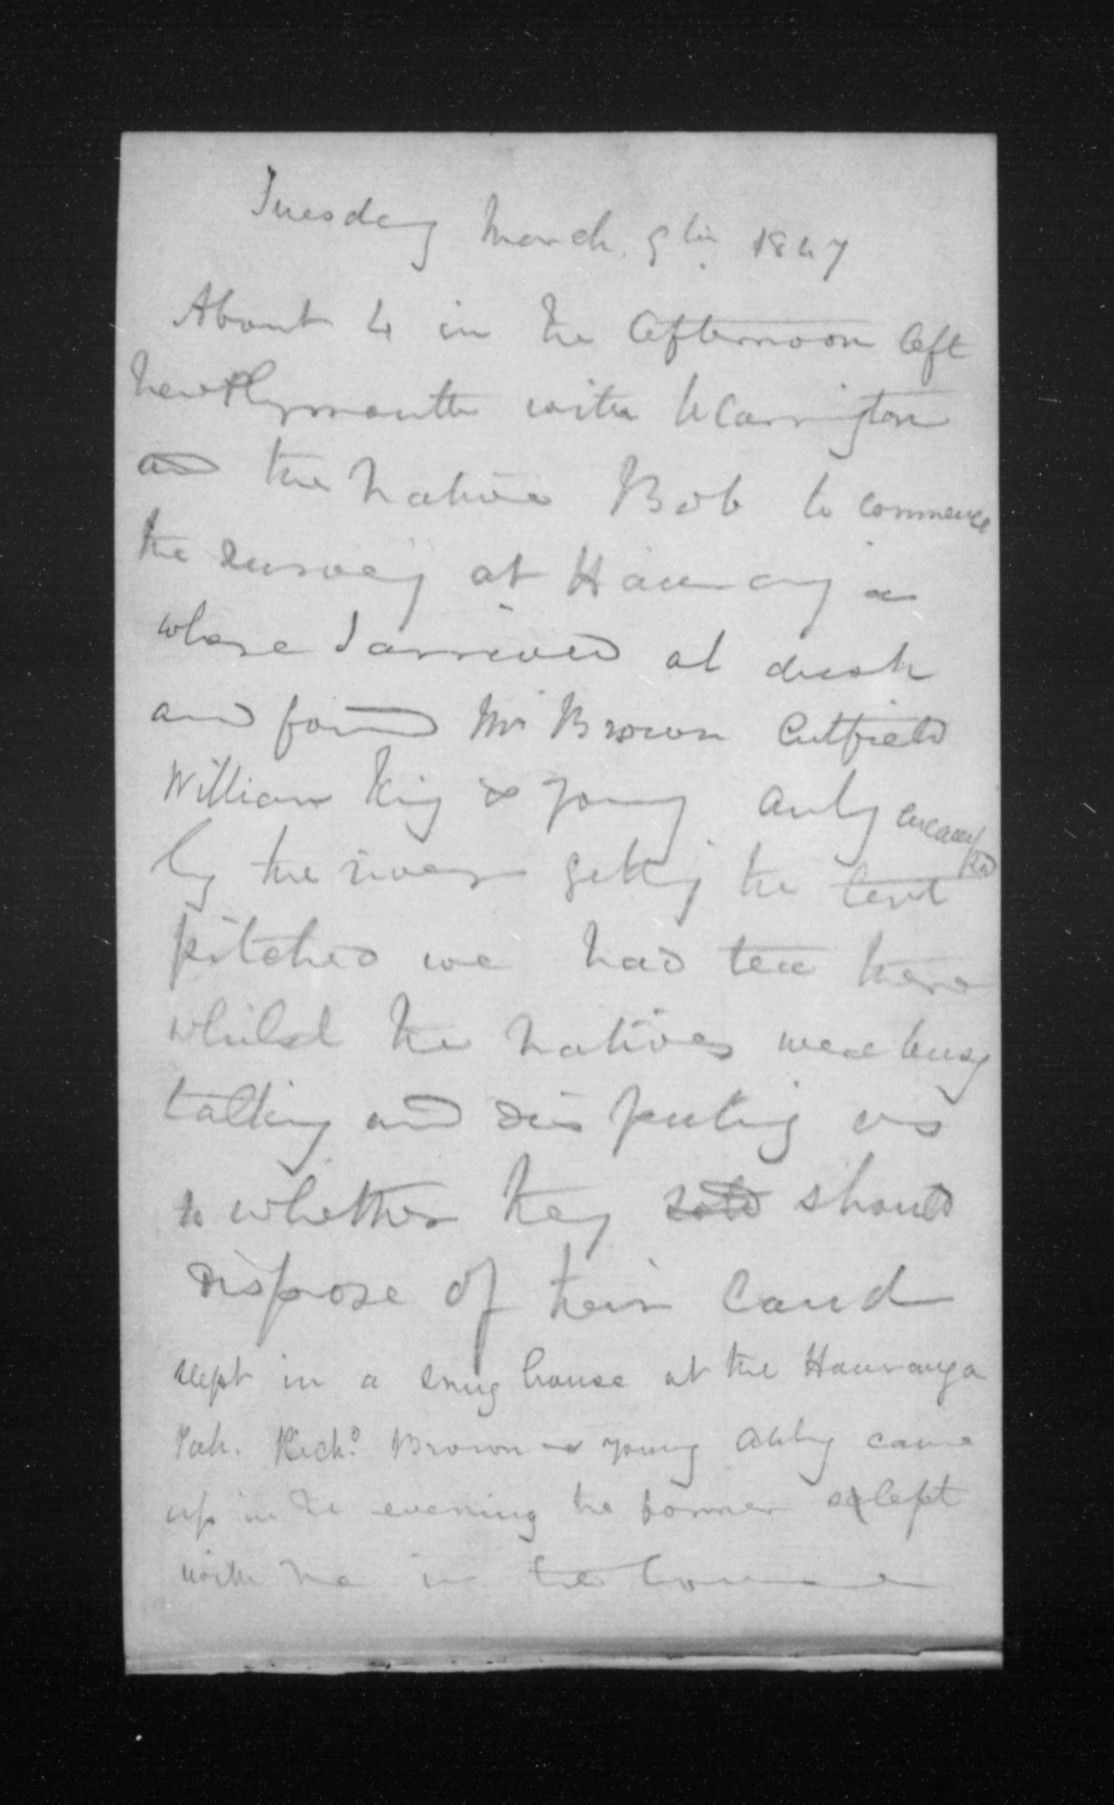 Tuesday March 9th 1847
About 4 in the afternoon left
New Plymouth with W Carrington
and the native Bob to commence
the survey at Hauranga
where I arrived at dusk
and found Mr Brown Cutfield
William King & young Auby encamped
by the river getting the tent
pitched we had tea there
whilst the natives were busy
talking and disputing as
to whether they sold should
dispose of their land
slept in a snug house at the Hauranga
Pah. Richd Brown & young Aubry came
up in the evening the former slept
with me in the house